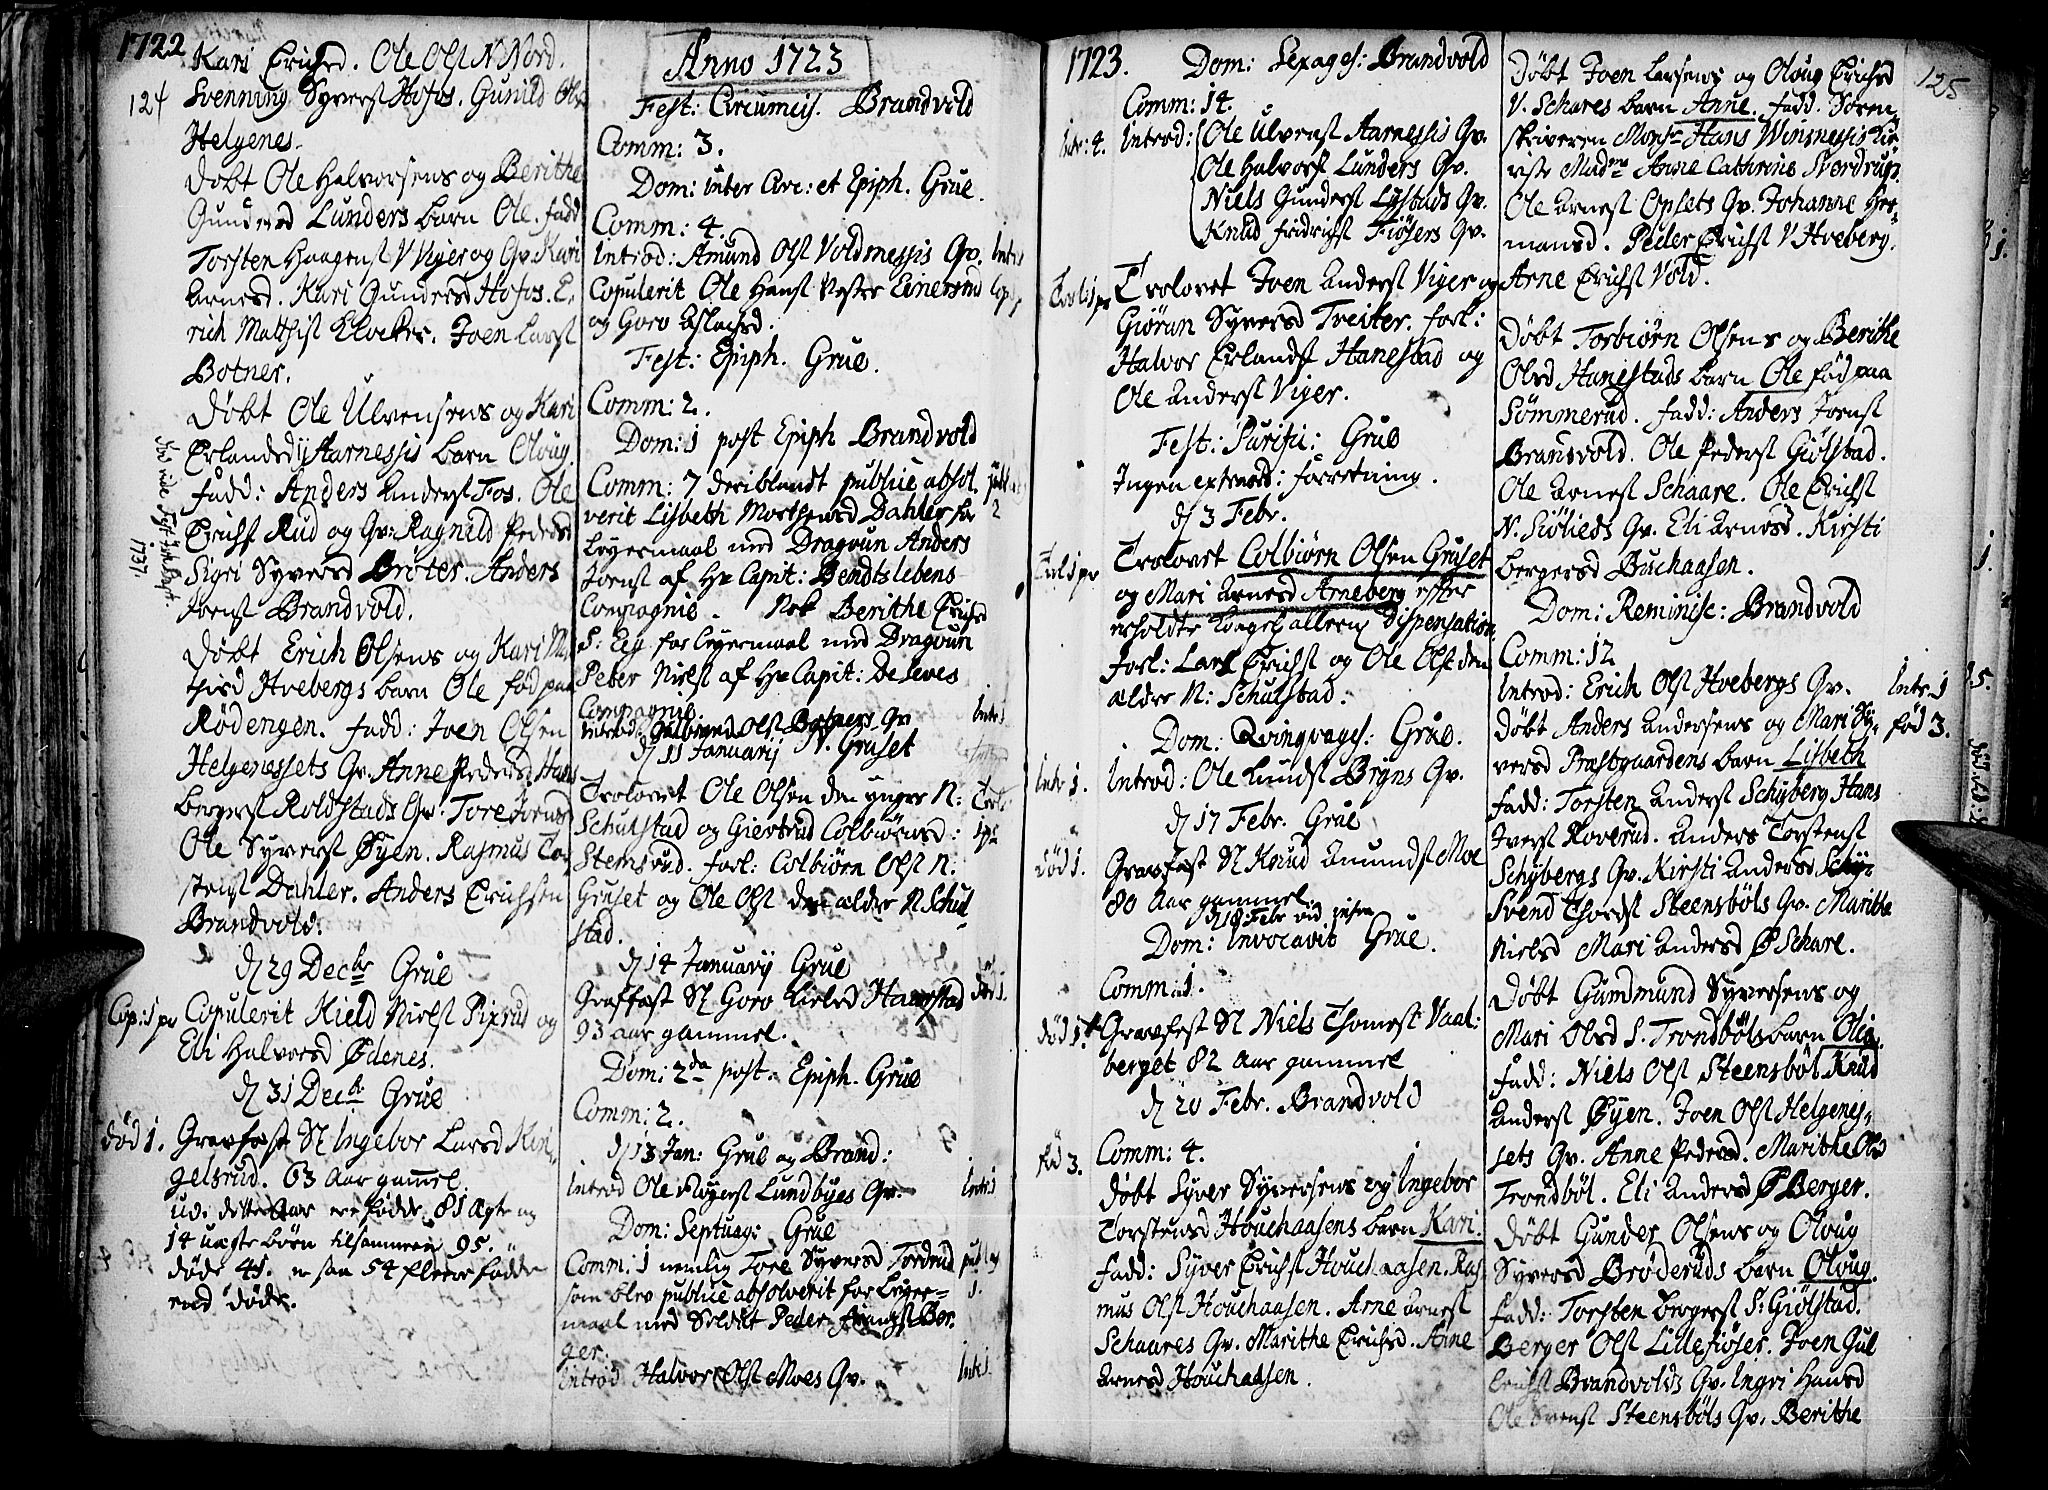 1722
124
Kari Erichsd. Ole Olss N Nord.
Svenning Syverss Hofos. Gunild Ols
Helgenes.
Døbt Ole Halvorsens og Berithe
Gundersd Lunders barn Ole. fadd
Torsten Haagenss V Viger og Qv. Kari
Arnesd. Kari Gundersd Hofos. E,
rich Matthiss Klocker. Joen Larss
Botner.
Døbt Ole Ulvensens og Kari
Erlandsdy Aarnessis barn Oloug.
fadd: Anders Anderss Fos. Ole
Erichss Rud og Qv: Ragnild Pedersd
Sigri Syversd Bröter. Anders
Jorenss Brandvold.
1737.
Døbt Erich Olsens og Kari Ma
thisd Hvebergs barn Ole fød paa
Rödengen. fadd: Joen Olsen
Helgenessets Qv. Anne Pedersd. Hans
Bergerss Roldstads Qv. Tore Jornsd
Ole Syverss Öyen. Rasmus Tor
stenss Dahler. Anders Erichsen
Brandvold.
d 29 Decbr Grue
Cop: 1 pr
Copulerit Kield Nielss Pixrud og
Eli Halvorsd Ödenes.
d 31 Decbr Grue
död 1.
Gravfæst Sl Ingebor Larsd Kin,
gelsrud. 63 Aar gamel.
Udi dette Aar ere fødde 81 Ægte og
14 uægte börn tilsammen 95.
døde 41. er saa 54 fleere fødde
end døde.
Anno 1723
Fest: Circumcis. Brandvold
Comm: 3.
Dom: inter Circ: et Epiph. Grue.
Comm: 4.
Introd: Amund Olss Voldnessis Qv. Intr 1
Copulerit Ole Hanss Vester Einersrud Cop 1 p
og Goro Aslachsd.
Fest: Epiph. Grue.
Comm: 2.
Dom: 1 post Epiph Brandvold
Comm: 7 deriblandt publice absol.
verit Lisbeth Morthensd Dahler for 2
Leyermaal med Dragoun Anders
Jornss af Hr Capit: Bendtslebens
Compagnie. Nok Berithe Erichsd
S: Eeg for leyermaal med Dragoun
Peter Nielss af Hr Capit: De Seves
Compagnie
Introd: Gulbrand Olss Botners Qv Intr 1
d 11 Januarij N. Gruset
Trolovet Ole Olsen den yngre N: Trol:
Schulstad og Giertrud Colbiörnsd: 1 pr
Stemsrud. forl: Colbiörn Olss N:
Gruset og Ole Olss den ælder N Schul-
stad.
d 14 Januarij Grue
Graffæst Sl Goro Kieldsd Haugstad död 1.
93 aar gammel.
Dom: 2da post. Epiph. Grue
Comm: 2.
d 13 Jan: Grue og Brand:
Introd Ole Røyerss Lundbyes Qv. Intr 1
Dom: Septuag: Grue
Comm: 1 nemlig Tore Syversd Torderud publ
som blev publice absolverit for Leyer= 1.
maal med Soldat Peder Frangss Ber,
ger.
introd Halvor Olss Moes Qv. Intr 1.
1723.
Dom: Sexages: Brandvold
Comm: 14.
Intr: 4. Introd: Ole Ulvenss Aarnessis Qv.
Ole Halvorss Lunders Qv.
Niels Gunderss Lystads Qv.
Knud Fridrichss Fiösers Qv.
Trol: 1 pr
Trolovet Joen Anderss Viger og
Giöran Syversd Treiter. forl:
Halvor Erlandss Hanestad og
Ole Anderss Viger.
Fest: Purifi: Grue
Ingen extraord: forretning.
d 3 Febr.
Trol 1 pr
Trolovet Colbiörn Olsen Gruset
og Mari Arnesd Arneberg efter
erholdte Kongel allern Dispensation
forl: Lars Erichss og Ole Olss den
ælder N: Schulstad.
Dom. Qvinqvages: Grue.
Intr 1. Introd: Ole Knudss Bryns Qv.
d 17 Febr. Grue
död 1.
Gravfæst Sl Knud Amundss Moe
80 Aar gammel
d 18 Febr
Dom: Invocavit Grue.
Comm: 1.
död 1.
Gravfest Sl Niels Thomess: Vaal:
berget 82 Aar gammel
d 20 Febr. Brandvold
fød 3.
Comm: 4.
Døbt Syver Syversens og Ingebor
Torstensd Houchaasens barn Kari.
fadd: Syver Erichss Houchaasen. Ras
mus Olss Houchaasen. Arne Arness
Schaares Qv. Marithe Erichsd. Anne
Arnesd Houchaasen.
125
Døbt Joen Larsens og Oloug Erichsd
V. Schares barn Anne. fadd. Soren,
skriveren Monsr Hans Winsnessis Kie,
reste Madme Anne Cathrine Sverdrup.
Ole Arness Opsets Qv. Johanne Her,
mansd. Peder Erichss V Hveberg.
Arne Erichss Vold.
Døbt Torbiörn Olsens og Berithe
Olsd Hanestads barn Ole fød paa
Sömmerud. fadd: Anders Jornss
Brandvold. Ole Pederss Giölstad.
Ole Arness Schaare. Ole Erichss
N. Siölieds Qv. Eli Arnesd. Kirsti
Bergersd Buchaasen.
Dom: Reminisc: Brandvold
Comm: 12
Introd: Erich Olss Hvebergs Qv. Intr. 1
Døbt Anders Andersens og Mari Sy, fød 3.
versd Præstgaardens barn Lisbeth
fadd: Torsten Anderss Schyberg Hans
Iverss Roverud. Anders Torstenss
Schybergs Qv. Kirsti Andersd Schy,
Svend Thordss Steensböls Qv. Marithe
Nielsd Mari Andersd Ø Schare.
Døbt Gundmund Syversens og
Mari Olsd S. Trondböls barn Olia.
fadd: Niels Olss Steensböl Knud
Anderss Öyen. Joen Olss Helgenes=
sets Qv. Anne Pedersd. Marithe Olsd
Trondböl. Eli Andersd Ø Berger.
Døbt Gunder Olsens og Oloug
Syversd Bröderuds barn Oloug.
fadd: Torsten Bergerss S: Giölstad.
Berger Olss Lillefiöser. Joen Gul
brichss Brandvolds Qv. Ingri Hansd
Ole Svenss Steensböls Qv. Berithe